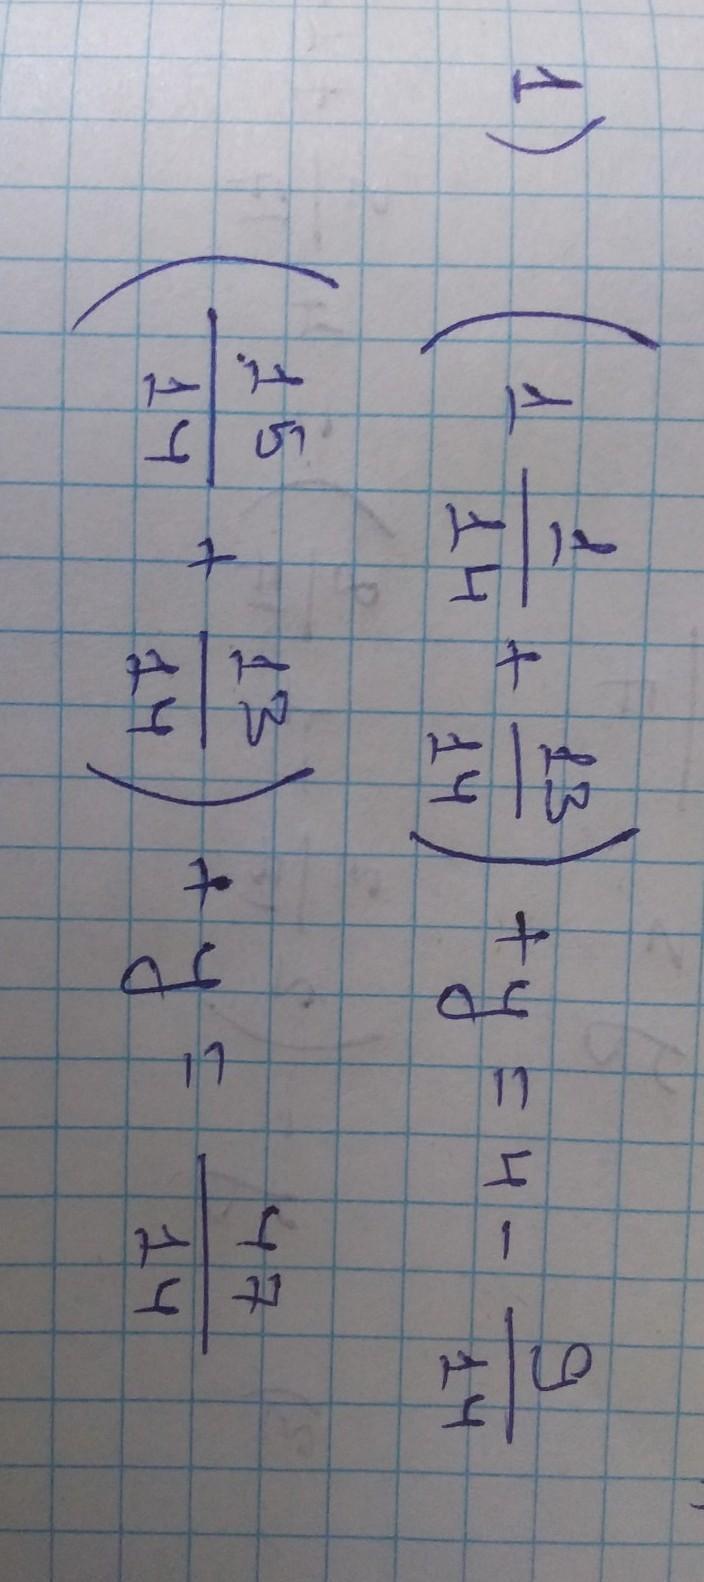 1) (1 1/14 + 13/14) + y = 4 - 9/14
(15/14 + 13/14) + y = 47/14